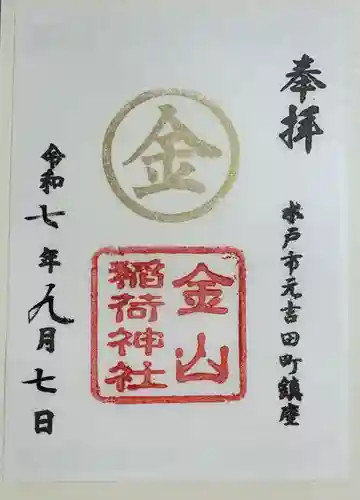 奉拝
水戸市元吉田町鎮座
金
金山
稲荷神社
令和七年九月七日